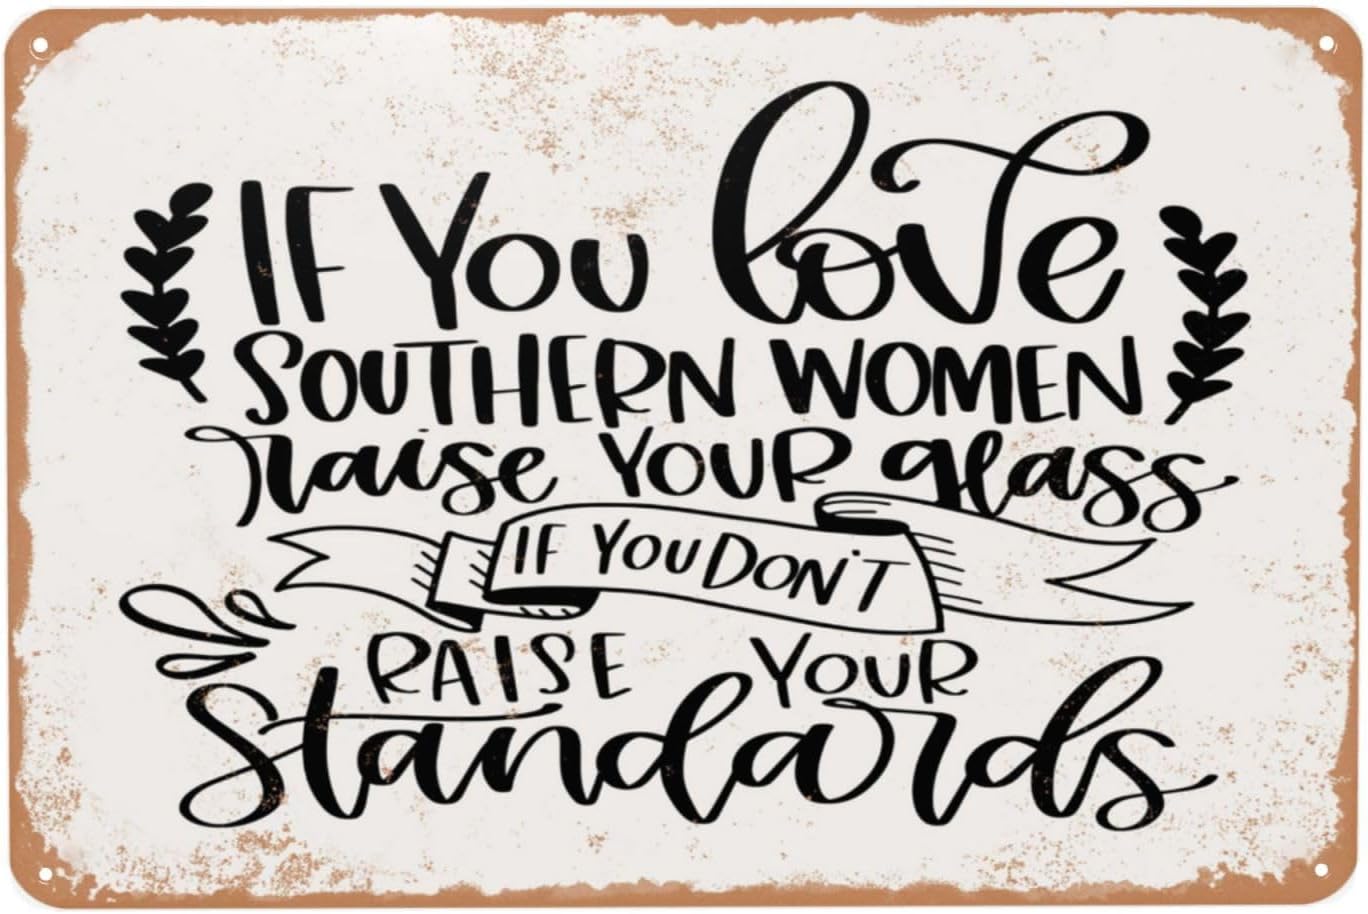 IF YOU love
SOUTHERN WOMEN
raise YOUR glass
IF YOU DON'T
RAISE YOUR
Standards